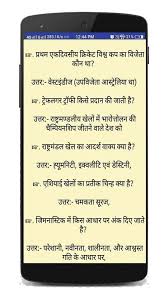 12:44 PM
प्रथम एकदिवसीय क्रिकेट विश्व कप का विजेता
कौन था?
उत्तर:- वेस्टइंडीज (उपविजेता आस्ट्रेलिया था)
ट्रेफलगर ट्रॉफी किसे प्रदान की जाती है?
उत्तर:- राष्ट्रमण्डलीय खेलों में भारोत्तोलन की
चैम्पियनशिप जीतने वाले देश को
राष्ट्रमंडल खेल का आदर्श वाक्य क्या है?
उत्तर:- ह्यूमनिटी, इक्वलीटि एवं डेस्टिनी,
एशियाई खेलों का प्रतीक चिन्ह क्या है?
उत्तर:- चमकता सूरज,
जिमनास्टिक में किस आधार पर अंक दिए जाते
है?
उत्तर:- परेशानी, नवीनता, शालीनता, और आश्वस्त
गति के आधार पर,